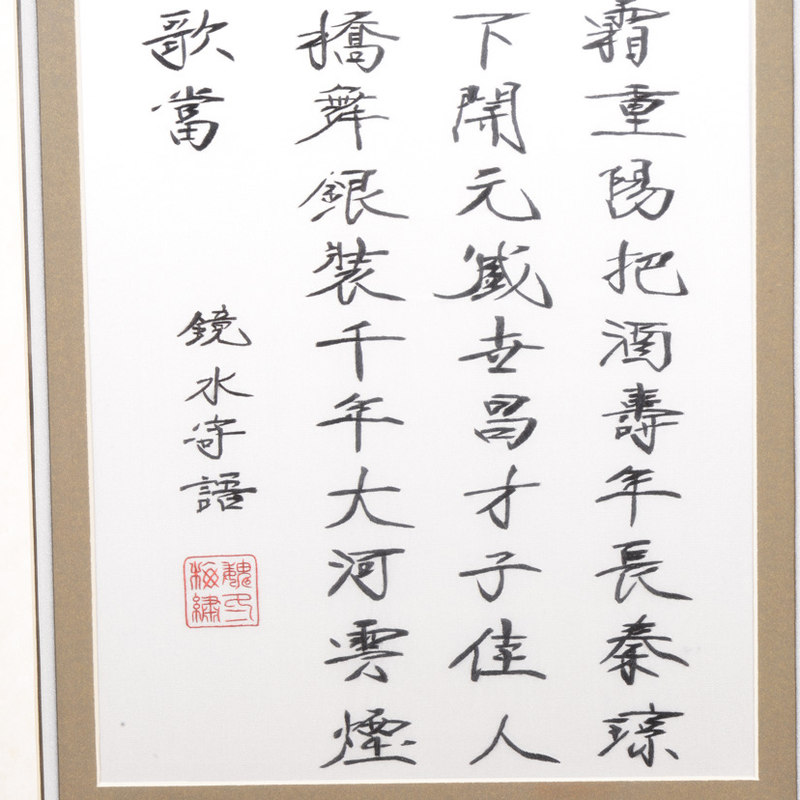 霜重陽把酒壽年長秦琼
下開元盛世昌才子佳人
橋舞銀裝千年大河雲煙
歌當
鏡水寄語
魏印梅繡